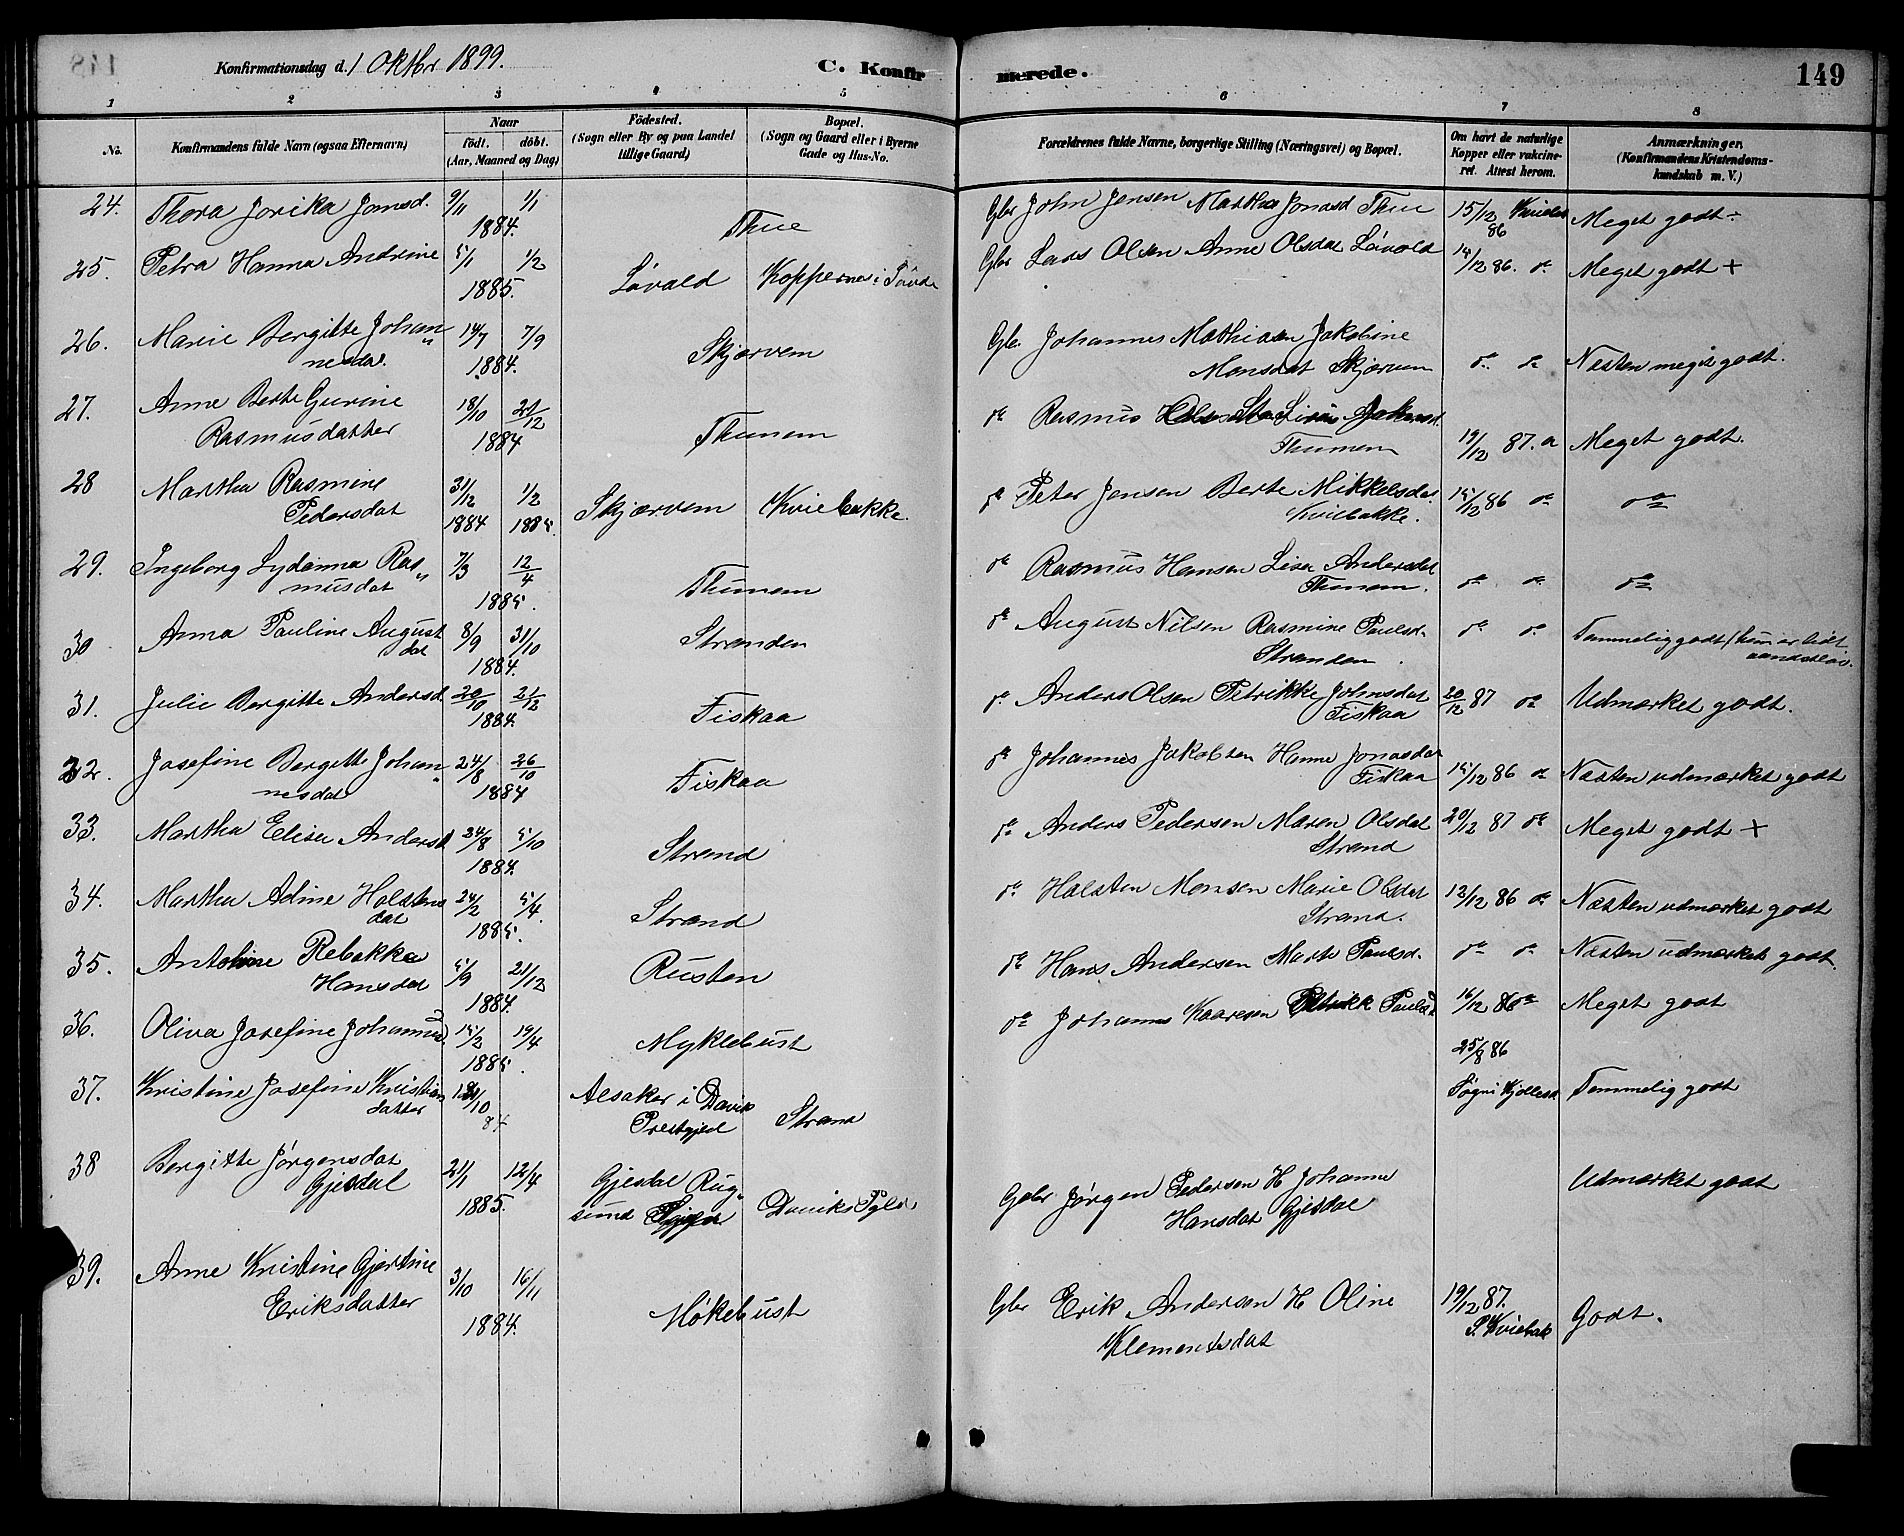 Konfirmationsdag d. 1 Oktbr 1899. C. Konfirmerede. 149
1 2 3 4 5 6 7 8
No. Konfirmandens fulde Navn (ogsaa Efternavn) Naar födt. döbt. (Aar, Maaned og Dag) Födested. (Sogn eller By og paa Landet tillige Gaard) Bopæl. (Sogn og Gaard eller i Byerne Gade og Hus-No. Forældrenes fulde Navne, borgerlige Stilling (Næringsvei) og Bopæl. Om havt de naturlige Kopper eller vakcineret. Attest herom. Anmærkninger (Konfirmandens Kristendomskundskab m. V.)
24. Thora Jonsd. 9/11 1/1 1884. Thue Gbr John Jensen Martha Jonasd Thue 15/12 86 Meget godt ÷
25. Petra Hanna Andrine 5/1 1/2 1885. Lövold Koppernes i Gbr Lars Olsen Anne Olsdat Lövold 15/12 86. do Meget godt +
26. Marie Bergitte Johan„
nesdat. 14/7 7/9 1884. Skjærvem Gbr. Johannes Mathiasen Jakobine
Monsdat Skjærven do do Næsten meget godt.
27. Anne Berte Gurine
Rasmusdatter 18/10 21/12 1884 Thunem do Rasmus
Thunem 19/12 87. Meget godt.
28 Martha Rasmine
Pedersdat 31/12 1884 1/2 1885. Skjærvem Kviebakke. do Peter Jensen Berte Mikkelsdat
Kviebakke. 15/12 86 do do
29. Ingeborg Lydianna Ras„
musdat 7/3 12/4 1885. Thunem do Rasmus Hansen Lisa Andersdat
Thunem. do do do
30 Anna Pauline August
dat 8/9 31/10 1884. Stranden do August Nilsen Rasmine Paulsd.
Stranden. do do Temmelig godt (hun er lidt
31. Julie Bergitte Andersd. 20/10 21/12 1884. Fiskaa do Anders Olsen Petrikke Johnsdat
Fiskaa 20/12 87 do Udmærket godt.
32. Josefine Bergitte Johan„
nesdat 24/8 26/10 1884 Fiskaa do Johannes Jakobsen Hanne Jonasdat
Fiskaa 15/12 86 do Næsten udmærket godt
33. Martha Elisa Andersd 24/8 5/10 1884. Strand do Anders Pedersen Maren Olsdat
Strand 20/12 87 do Meget godt +
34. Martha Adine Holstens
dat 24/2 5/4. 1885. Strand do Holsten Monsen Marie Olsdat
Strand. 12/12 86 do Næsten udmærket godt
35. Antoline Rebekka
Hansdat 5/9 21/12 1884. Rusten do Hans Andersen Marte Paulsd. do do Næsten udmærket godt.
36. Oliva Josefine Johannesd. 15/2 19/4 1885. Myklebust do Johannes Kaaresen Petrikk Paulsd 16/12 86 do Meget godt
37. Kristine Josefine Kristian
datter /10 84 Aesaker i Davik
Prestgjeld Strand 25/8 86
Temmelig godt
38 Bergitte Jørgensdat
Gjesdal 21/1 12/4 1885. Gjesdal Rug„
sund Daviks Pgld. Gbr Jørgen Pedersen H Johanne
Hansdat Gjesdal Udmærket godt
39. Anne Kristine Gjertine
Eriksdatter 3/10 16/11 1884. Møkebust Gbr Erik Andersen H Oline
Klementsdat 19/12 87.
P. Kviebak Godt.